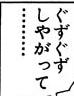 ぐずぐず
しやがって
………